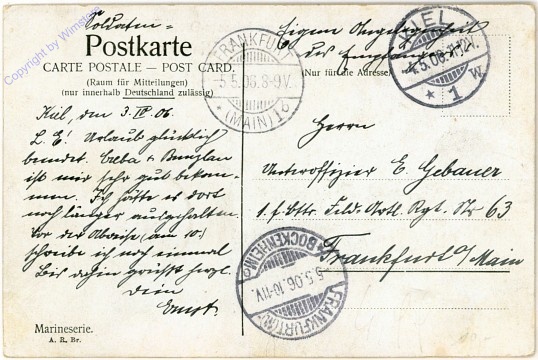 Soldaten=
Postkarte
CARTE POSTALE — POST CARD.
(Raum für Mitteilungen)
(nur innerhalb Deutschland zulässig)
Kiel, den 3. IV. 06.
L. E! Urlaub glücklich
beendet. & Bunzlau
ist mir sehr gut bekom-
men. Ich hätte es dort
noch länger ausgehalten.
Vor der Abreise (am 10.)
schreibe ich noch einmal
Bis dahin grüsst herzl.
Dein
Ernst.
Marineserie.
A. R. Br.
Eigene Angelegenheit
des Empfängers
(Nur für die Adresse)
Herrn
Unteroffizier E. Gebauer
1. f. Bttr. Feld-Artl. Rgt. Nr 63
Frankfurt a/Main
FRANKFURT
5.5.06.8-9V.
* (MAIN) 1 b
KIEL
4.5.06.
* 1 w.
BOCKENHEIM
5.5.06.10-11V.
FRANKFURT (M)
Copyright by Wimsteins